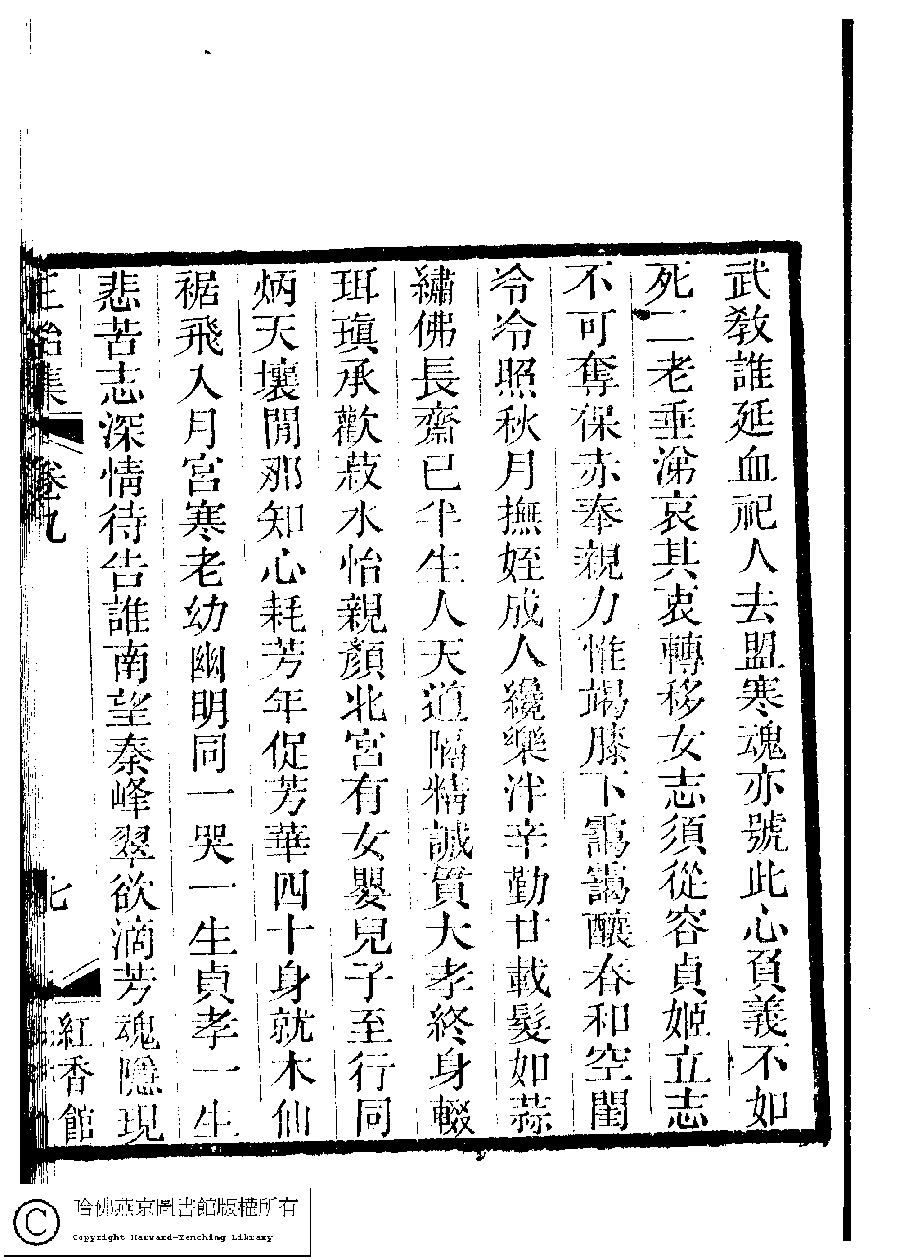 武敎誰延血祀人去盟寒魂亦號此心負義不如
死二老垂涕哀其衷轉移女志須從容貞姬立志
不可奪保赤奉親力惟竭膝下靄靄釀春和空閨
冷冷照秋月撫姪成人纔樂泮辛勤廿載髮如蒜
繡佛長齋已半生人天道隔精誠貫大孝終身輟
珥瑱承歡菽水怡親顏北宮有女嬰兒子至行同
炳天壤間那知心耗芳年促芳華四十身就木仙
裾飛入月宮寒老幼幽明同一哭一生貞孝一生
悲苦志深情待告誰南望秦峰翠欲滴芳魂隱現
集 卷九 七 紅香館
哈佛燕京圖書館版權所有
Copyright Harvard-Yenching Library